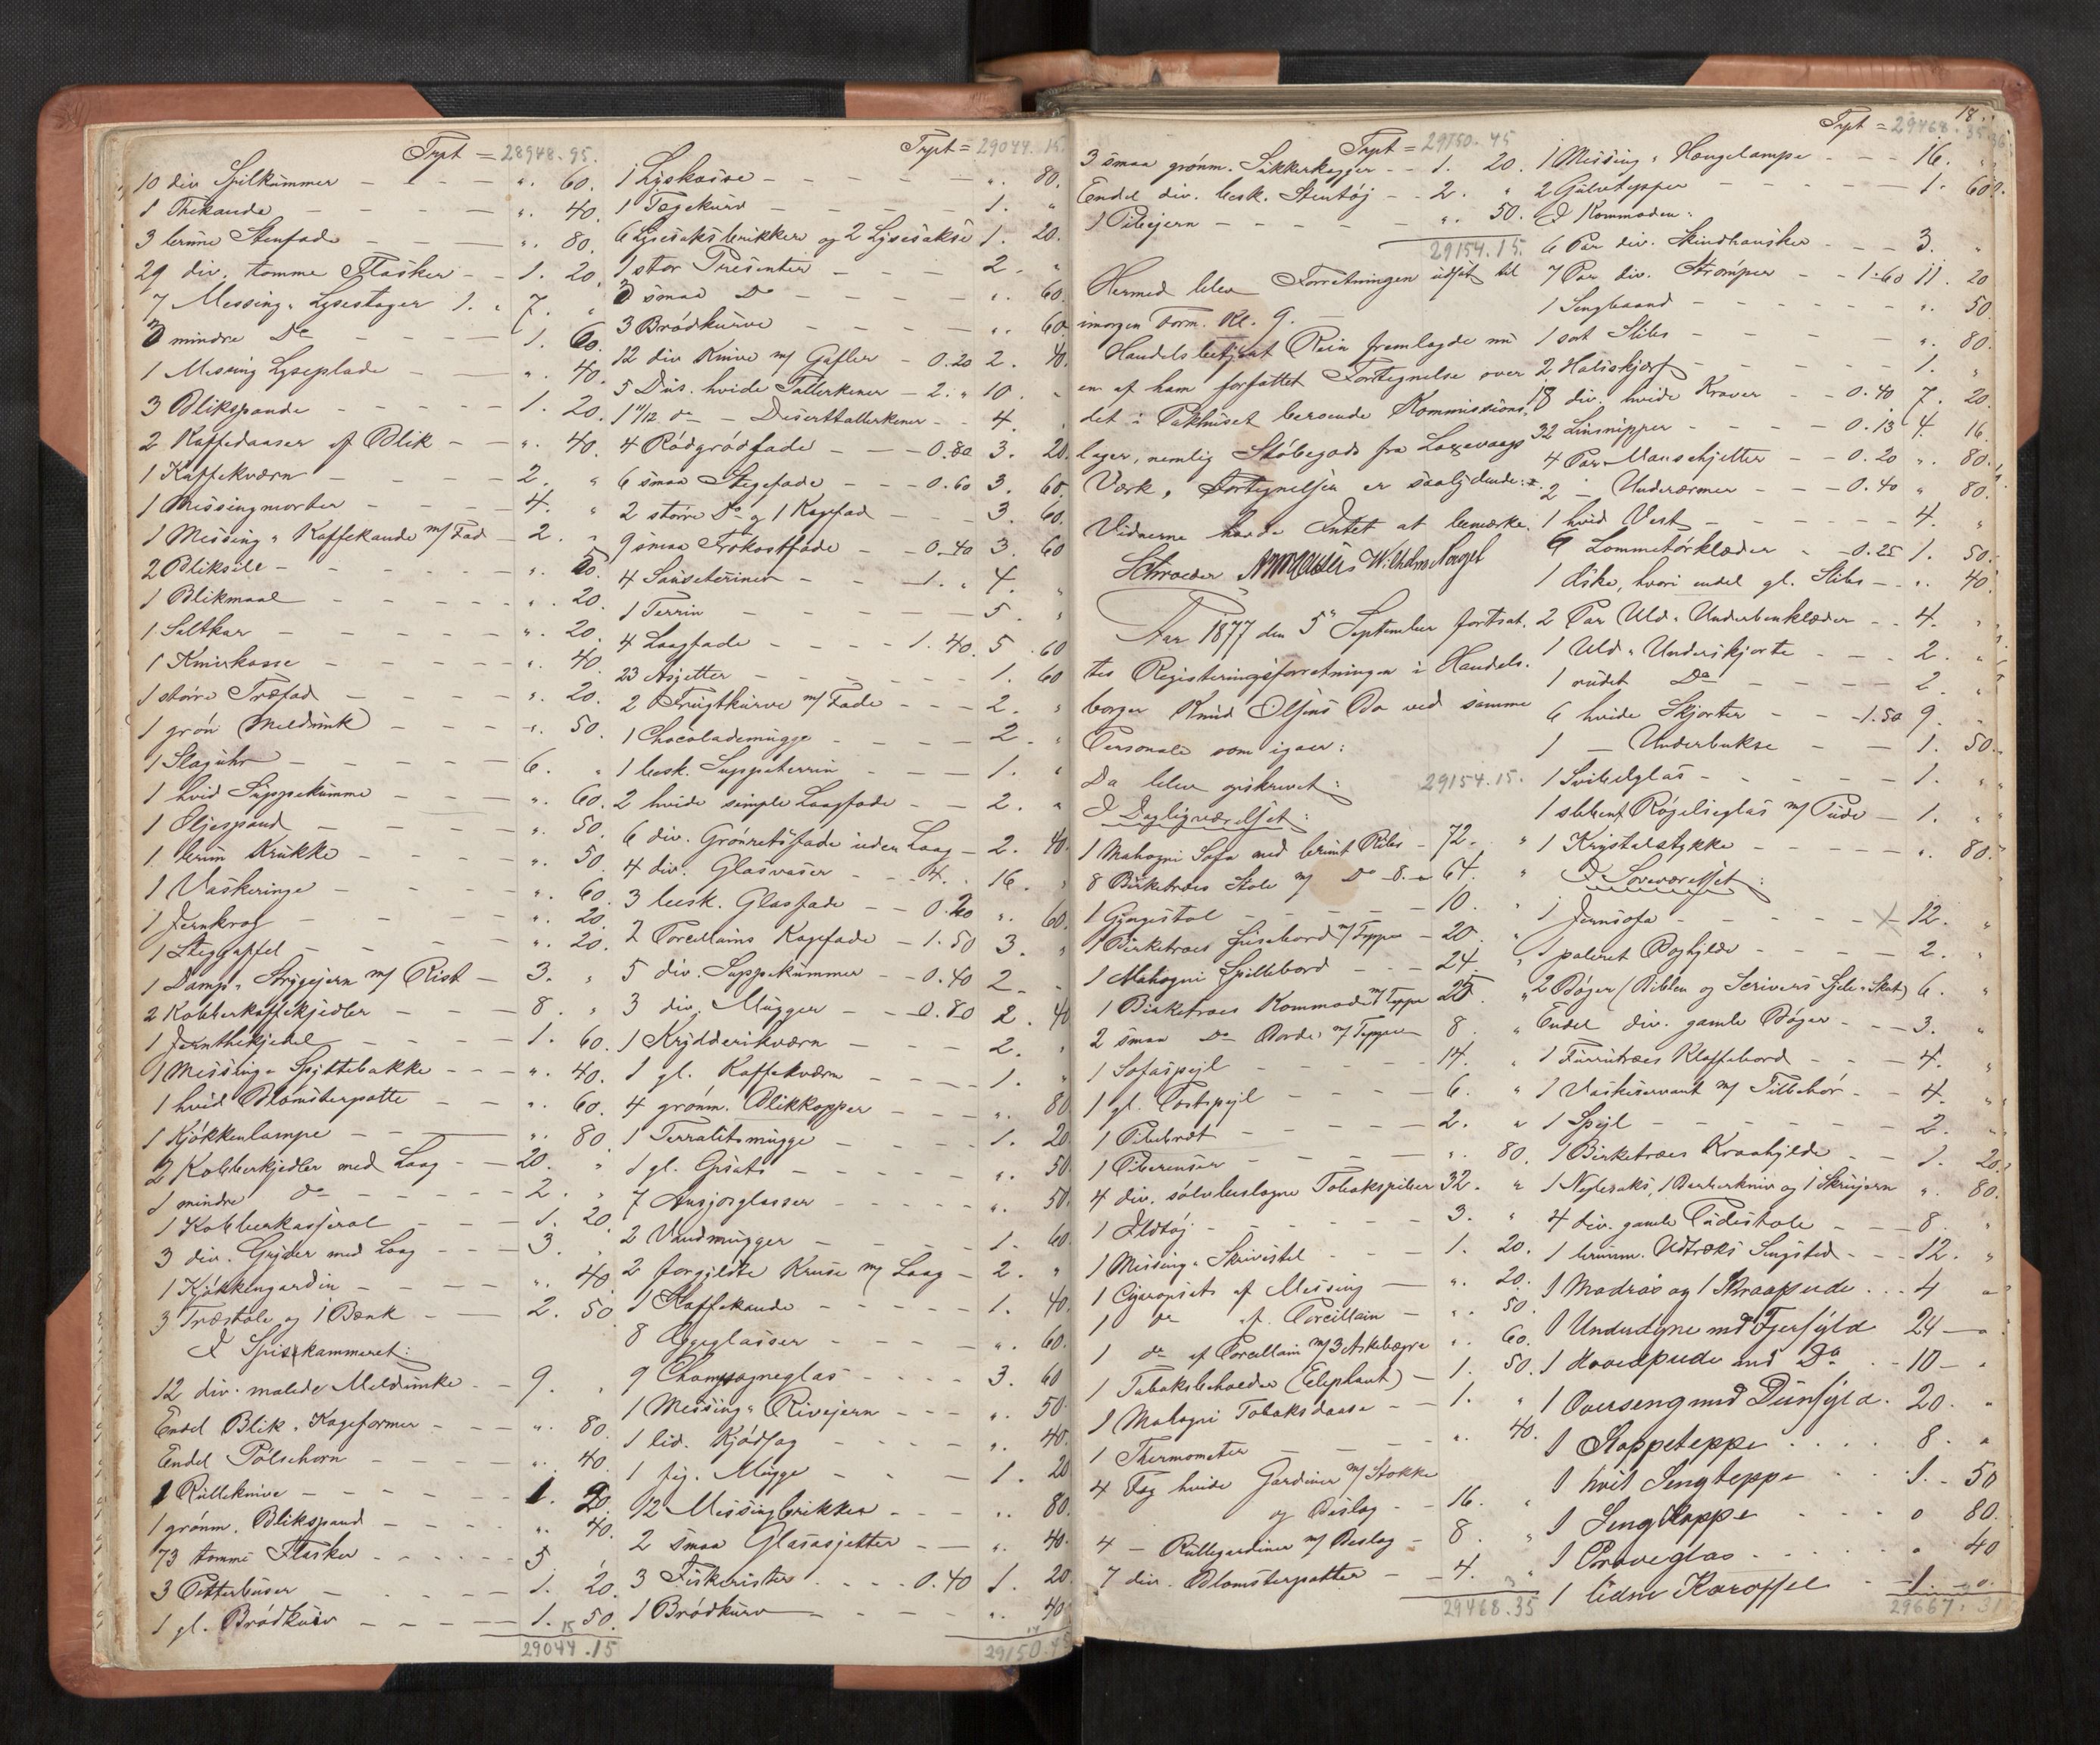 Trpt = 28948.95.
10 div Spilkummer - - - - ". 60.
1 Thekande - - - - ". 40.
3 brune Stenfade - - - ". 80.
29 div. tomme Flasker - - 1. 20.
7 Messing-Lysestager 1. " 7. "
3 mindre Do - - - 1. 60.
1 Messing Lyseplade - - ". 40.
3 Blikspande - - - - 1. 20.
2 Kaffedaaser af Blik - - ". 40.
1 Kaffekværn - - - - 2. "
1 Messingmorter - - - - 4. "
1 Messing-Kaffekande m/ Fad - 2. "
2 Bliksile - - - - ". 50.
1 Blikmaal - - - - ". 20.
1 Saltkar - - - - ". 20.
1 Knivkasse - - - - ". 40.
1 större Træfad - - - - ". 20.
1 grön Meldunk - - - ". 50.
1 Slaguhr - - - - 6. "
1 hvid Suppekumme - - - ". 60.
1 Oljespand - - - - ". 50.
1 brun Krukke - - - - ". 50.
1 Vaskeringe - - - - ". 60.
1 Jernkrog - - - - ". 20.
1 Steggaffel - - - - ". 20.
1 Damp-Strygejern m/ Rist - 3. "
2 Kobberkaffekjedler - - - 8. "
1 Jernthekjedel - - - - 1. 60.
1 Messing-Spyttebakke - - - ". 40.
1 hvid Blomsterpotte - - ". 60.
1 Kjökkenlampe - - - ". 80.
2 Kobberkjedler med Laag - - 20. "
1 mindre do - - - - 2. "
1 Kobberkasserol - - - 1. 20.
3 div. Gryder med Laag - - - 3. "
1 Kjökkengardin - - - - ". 40.
3 Træstole og 1 Bænk - - 2. 50.
I Spiskammeret:
12 div. malede Meldunke - - 9. "
Endel Blik-Kageformer - - - ". 80.
Endel Pölsehorn - - - - ". 40.
1 Rulleknive - - - - 1. 20.
1 grönm. Blikspand - - - ". 40.
73 tomme Flasker - - - - 5 "
3 Petterbüser - - - - 1. 20.
1 gl. Brödkurv - - - - 1. 50.
29044.15
Trpt = 29044.15.
1 Lyskasse - - - - ". 80.
1 Tægekurv - - - - 1. "
6 Lysesaksbrikker og 2 Lysesakse 1. 20.
1 stor Presenter - - - 2. "
3 smaa Do - - - - ". 60.
3 Brödkurve - - - - ". 60
12 div Knive m/ Gafler - 0.20 2. 40.
5 Dus. hvide Tallerkener - 2. " 10. "
1 11/12 do - Deserttallerkener - - 4. "
4 Rödgrödfade - - - 0.80 3. 20.
6 smaa Stegefade - - - 0.60 3. 60.
2 större Do og 1 Kagefad - - 3. 60.
9 smaa Frokostfade - - 0.40 3. 60
4 Sauseterriner - - 1. " 4. "
1 Terrin - - - - 5. "
4 Laagfade - - - - 1.40. 5. 60
23 Asjetter - - - - 1. 60
2 Frugtkurve m/ Fade - - - 2. "
1 Chocolademugge - - - - 2. "
1 besk. Suppeterrin - - - 1. "
2 hvide simple Laagfade - - 2. "
6 div. Grönretsfade uden Laag - 2. 40.
4 div. Glasvaser - - 4. " 16. "
3 besk. Glasfade - - 0.20 ". 60.
2 Porcellains Kagefade - 1.50 3. "
5 div. Suppekummer - - 0.40 2. "
3 div. Mugger - - 0.80 2. 40
1 Krydderikværn - - - 2. "
1 gl. Kaffekværn - - - 1. "
4 grönm. Blikkopper - - - ". 80
1 Terralitsmugge - - - 1. 20
1 gl. Opsats - - - - ". 50.
7 Ansjosglasser - - - - ". 50.
2 Vandmugger - - - - 1. 60.
2 forgyldte Kruse m/ Laag - 2. "
1 Kaffekande - - - - 1. 40.
8 Æggeglasser - - - - ". 60.
9 Champagneglas - - - - 3. 60
1 Messing-Rivejern - - - ". 50.
1 lid. Kjödsag - - - - ". 40.
1 fig. Mugge - - - 1. 20
12 Messingbrikker - - - ". 80.
2 smaa Glasasjetter - - ". 40.
3 Fiskerister - - - 0.40 1. 20
1 Brödkurv - - - - ". 40.
29150.45
Trpt = 29150.45
3 smaa grönm. Sukkerkopper - - 1. 20.
Endel div. besk. Stentöj - - 2. "
1 Pibejern - - - - ". 50.
29154.15.
Hermed blev Forretningen udsat til
imorgen Form. Kl. 9. -
Handelsbetjent Rein fremlagde nu
en af ham forfattet Fortegnelse over
det i Pakhuset beroende Kommissions-
lager, nemlig Stöbegods fra Laxevaags
Værk. Fortegnelsen er saalydende:
Vidnerne havde Intet at bemærke.
Schroeder Wilhelm
Aar 1877 den 5te September fortsat-
tes Registreringsforretningen i Handels-
borger Knud Olsens Bo ved samme
Personale som igaar:
Da blev opskrevet: 29154.15.
I Dagligværelset:
1 Mahogni Sofa med brunt Ribs - 72. "
8 Birketræes Stole m/ Do 8. " 64. "
1 Gyngestol - - - - 10. "
1 Birketræes Susebord m/ Teppe - 20. "
1 Mahogni Spillebord - - - 24. "
1 Birketræes Kommode m/ Teppe 25. "
2 smaa Do Borde m/ Tepper 8. "
1 Sofaspejl - - - - 14. "
1 gl. Postspejl - - - - 6. "
1 Pibebræt - - - - 2. "
1 Piberenser - - - - ". 80.
4 div. sölvbeslagne Tobakspiber 32. "
1 Ildtöj - - - - 3. "
1 Messing-Skrivestel - - - 1. 20.
1 Cigaropsats af Messing - ". 20.
1 do af Porcellain - ". 50.
1 do af Porcellain m/ 3 Askebægre ". 60.
1 Tobaksbeholder (Elephant) - 1. 50.
1 Mahogni Tobaksdaase - - 1. "
1 Thermometer - - - - ". 40.
4 Fag hvide Gardiner m/ Stokke
og Beslag - - 16. "
4 - Rullegardiner m/ Beslag - 8. "
7 div. Blomsterpotter - - 4. "
29468.35
18.
Trpt = 29468.35.
1 Messing-Hængelampe - - - 16. "
2 Gulvtepper - - - - 1. 60.
I Kommoden:
6 Par div. Skindhansker - - - 3. "
7 Par div. Strömper - - 1.60 11. 20
1 Sengbaand - - - - ". 50.
1 sort Slibs - - - - ". 80.
2 Halsskjærf - - - - 1. "
18 div. hvide Kraver - - 0.40 7. 20.
32 Linsnipper - - - 0.13 4. 16.
4 Par Manschjetter - - 0.20 ". 80.
2 - Underærmer - - - 0.40 " 80.
1 hvid Vest - - - - 4. "
6 Lommetörklæder - - 0.25 1. 50.
1 Æske, hvori endel gl. Slibs - - ". 40.
2 Par Uld-Underbenklæder - - 4. "
1 Uld-Underskjorte - - - 2. "
1 rudet Do - - - - 2. "
6 hvide Skjorter - - - 1.50 9. "
1 - Underbukse - - 1. 50.
1 Svibelglas - - - - 1. "
1 slebent Rögelseglas m/ Pude - 1. "
1 Krystalstykke - - - - ". 80.
I Soveværelset:
1 Jernsofa - - - - 12. "
1 poleret Boghylde - - - - 2. "
2 Böger (Biblen og Scrivers Sjele-Skat) 6. "
Endel div. gamle Böger - - - 3. "
1 Furrutræes Klaffebord - - - 4. "
1 Vaskeservant m/ Tilbehör - - 4. "
1 Spejl - - - - 2. "
1 Birketræes Kraahylde - - 1. 20.
1 Neglesaks, 1 Barberkniv og 1 Skruejern ". 80.
4 div. gamle Pudestole - - - 8. "
1 brunm. Udtræks Sengsted - - - 12. "
1 Madras og 1 Skraapude - - - 4 "
1 Underdyne med Fjerfyld 24 - "
1 Hovedpude med Do - - 10 - "
1 Overseng med Dunfyld. 20. "
1 Stoppeteppe - - - - 8. "
1 hvit Sengteppe - - 1. - 50
1 Sengkappe - - - " 80.
1 Prøveglas - - - - " 40
1 liden Karaffel - - 1. - "
29667.31